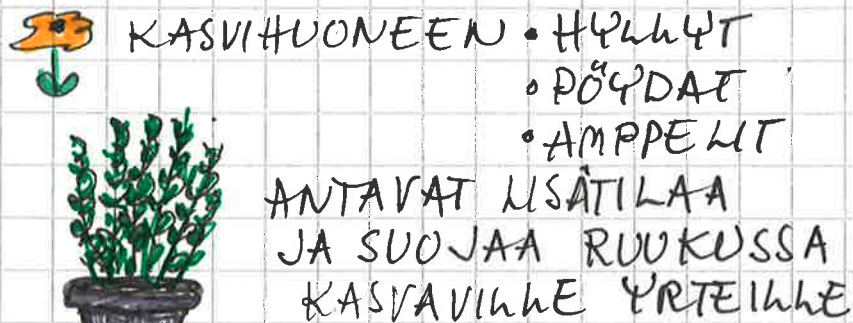 KASVIHUONEEN • HYLLYT
• PÖYDAT
• AMPPELIT
ANTAVAT LISÄTILAA
JA SUOJAA RUUKUSSA
KASVAVILLE YRTEILLE